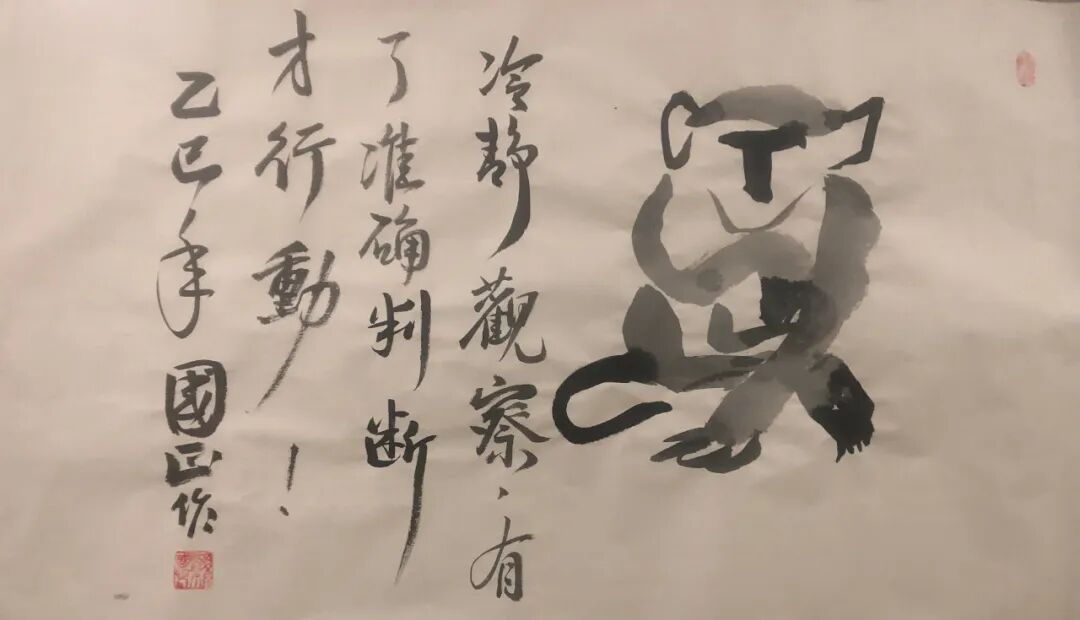 冷静觀察、有
了准确判断
才行動！
乙巳年 國正作